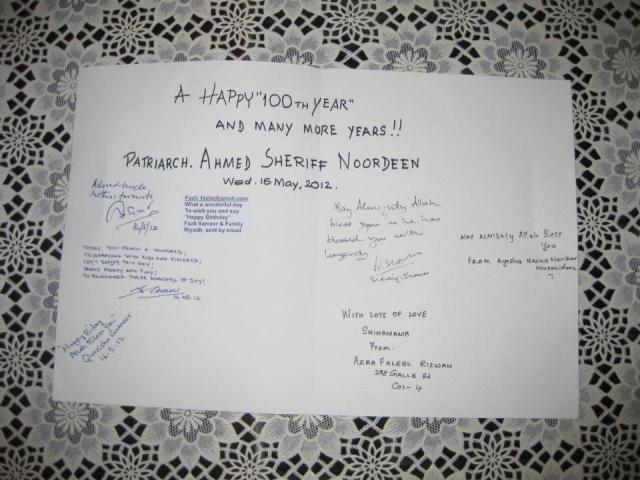 A HAPPY "100TH YEAR"
AND MANY MORE YEARS!!
PATRIARCH. AHMED SHERIFF NOORDEEN
Wed. 16 May, 2012.
Adored Uncle,
16/5/12
Fazli: fazlis@gmail.com
What a wonderful day
To wish you and say
"Happy Birthday"
Fazli Sameer & Family
Riyadh, sent by email
TODAY YOU REACH A HUNDRED;
CELEBRATING WITH KITH AND KINDRED;
LET'S ENJOY THIS DAY;
MAKE MERRY AND PLAY;
TO REMEMBER THESE MOMENTS OF JOY!
16.05.12
"Happy B'day
Allah Bless You"
Quraisha
16.5.12
May Almighty Allah
bless you as he has
blessed you with
longevity
MAY ALMIGHTY Allah Bless
You
FROM Ayesha Naina Marikar
WITH LOTS OF LOVE
SHINAMAMA
From.
AZRA FALEEL RIZWAN
298 GALLE Rd
Col-4